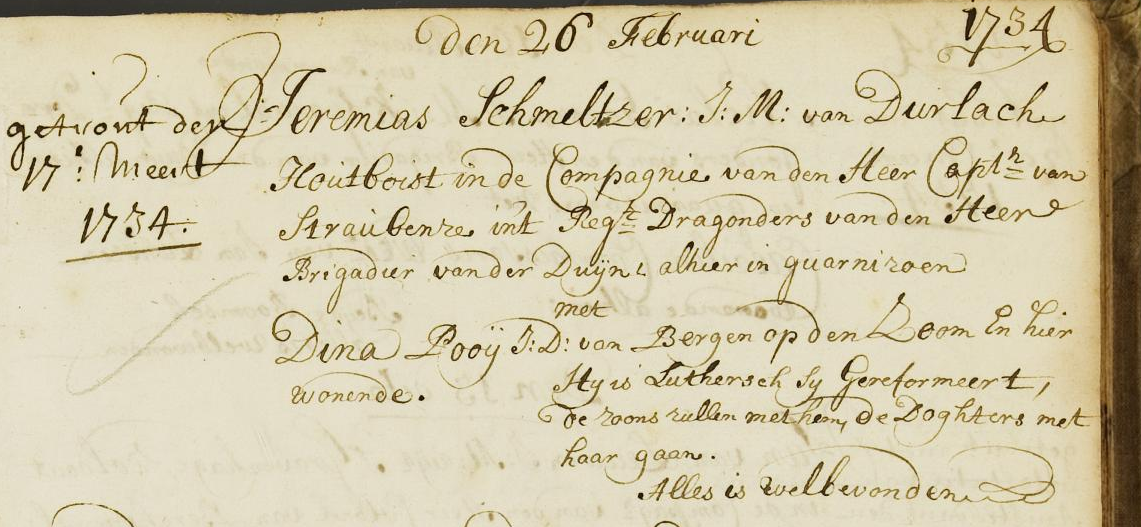 den 26 Februari 1734
getrout den
17: Meert
1734.
Jeremias Schmeltzer: J: M: van Durlach
Houtboist in de Compagnie van den Heer Captn van
Straubenze int Regt Dragonders van den Heere
Brigadier van der Duijn alhier in guarnizoen
met
Dina Pooÿ J: D: van Bergen op den Zoom En hier
wonende.
Hy is Luthersch sy Gereformeert,
de zoons zullen met hem, de Doghters met
haar gaan.
Alles is welbevonden